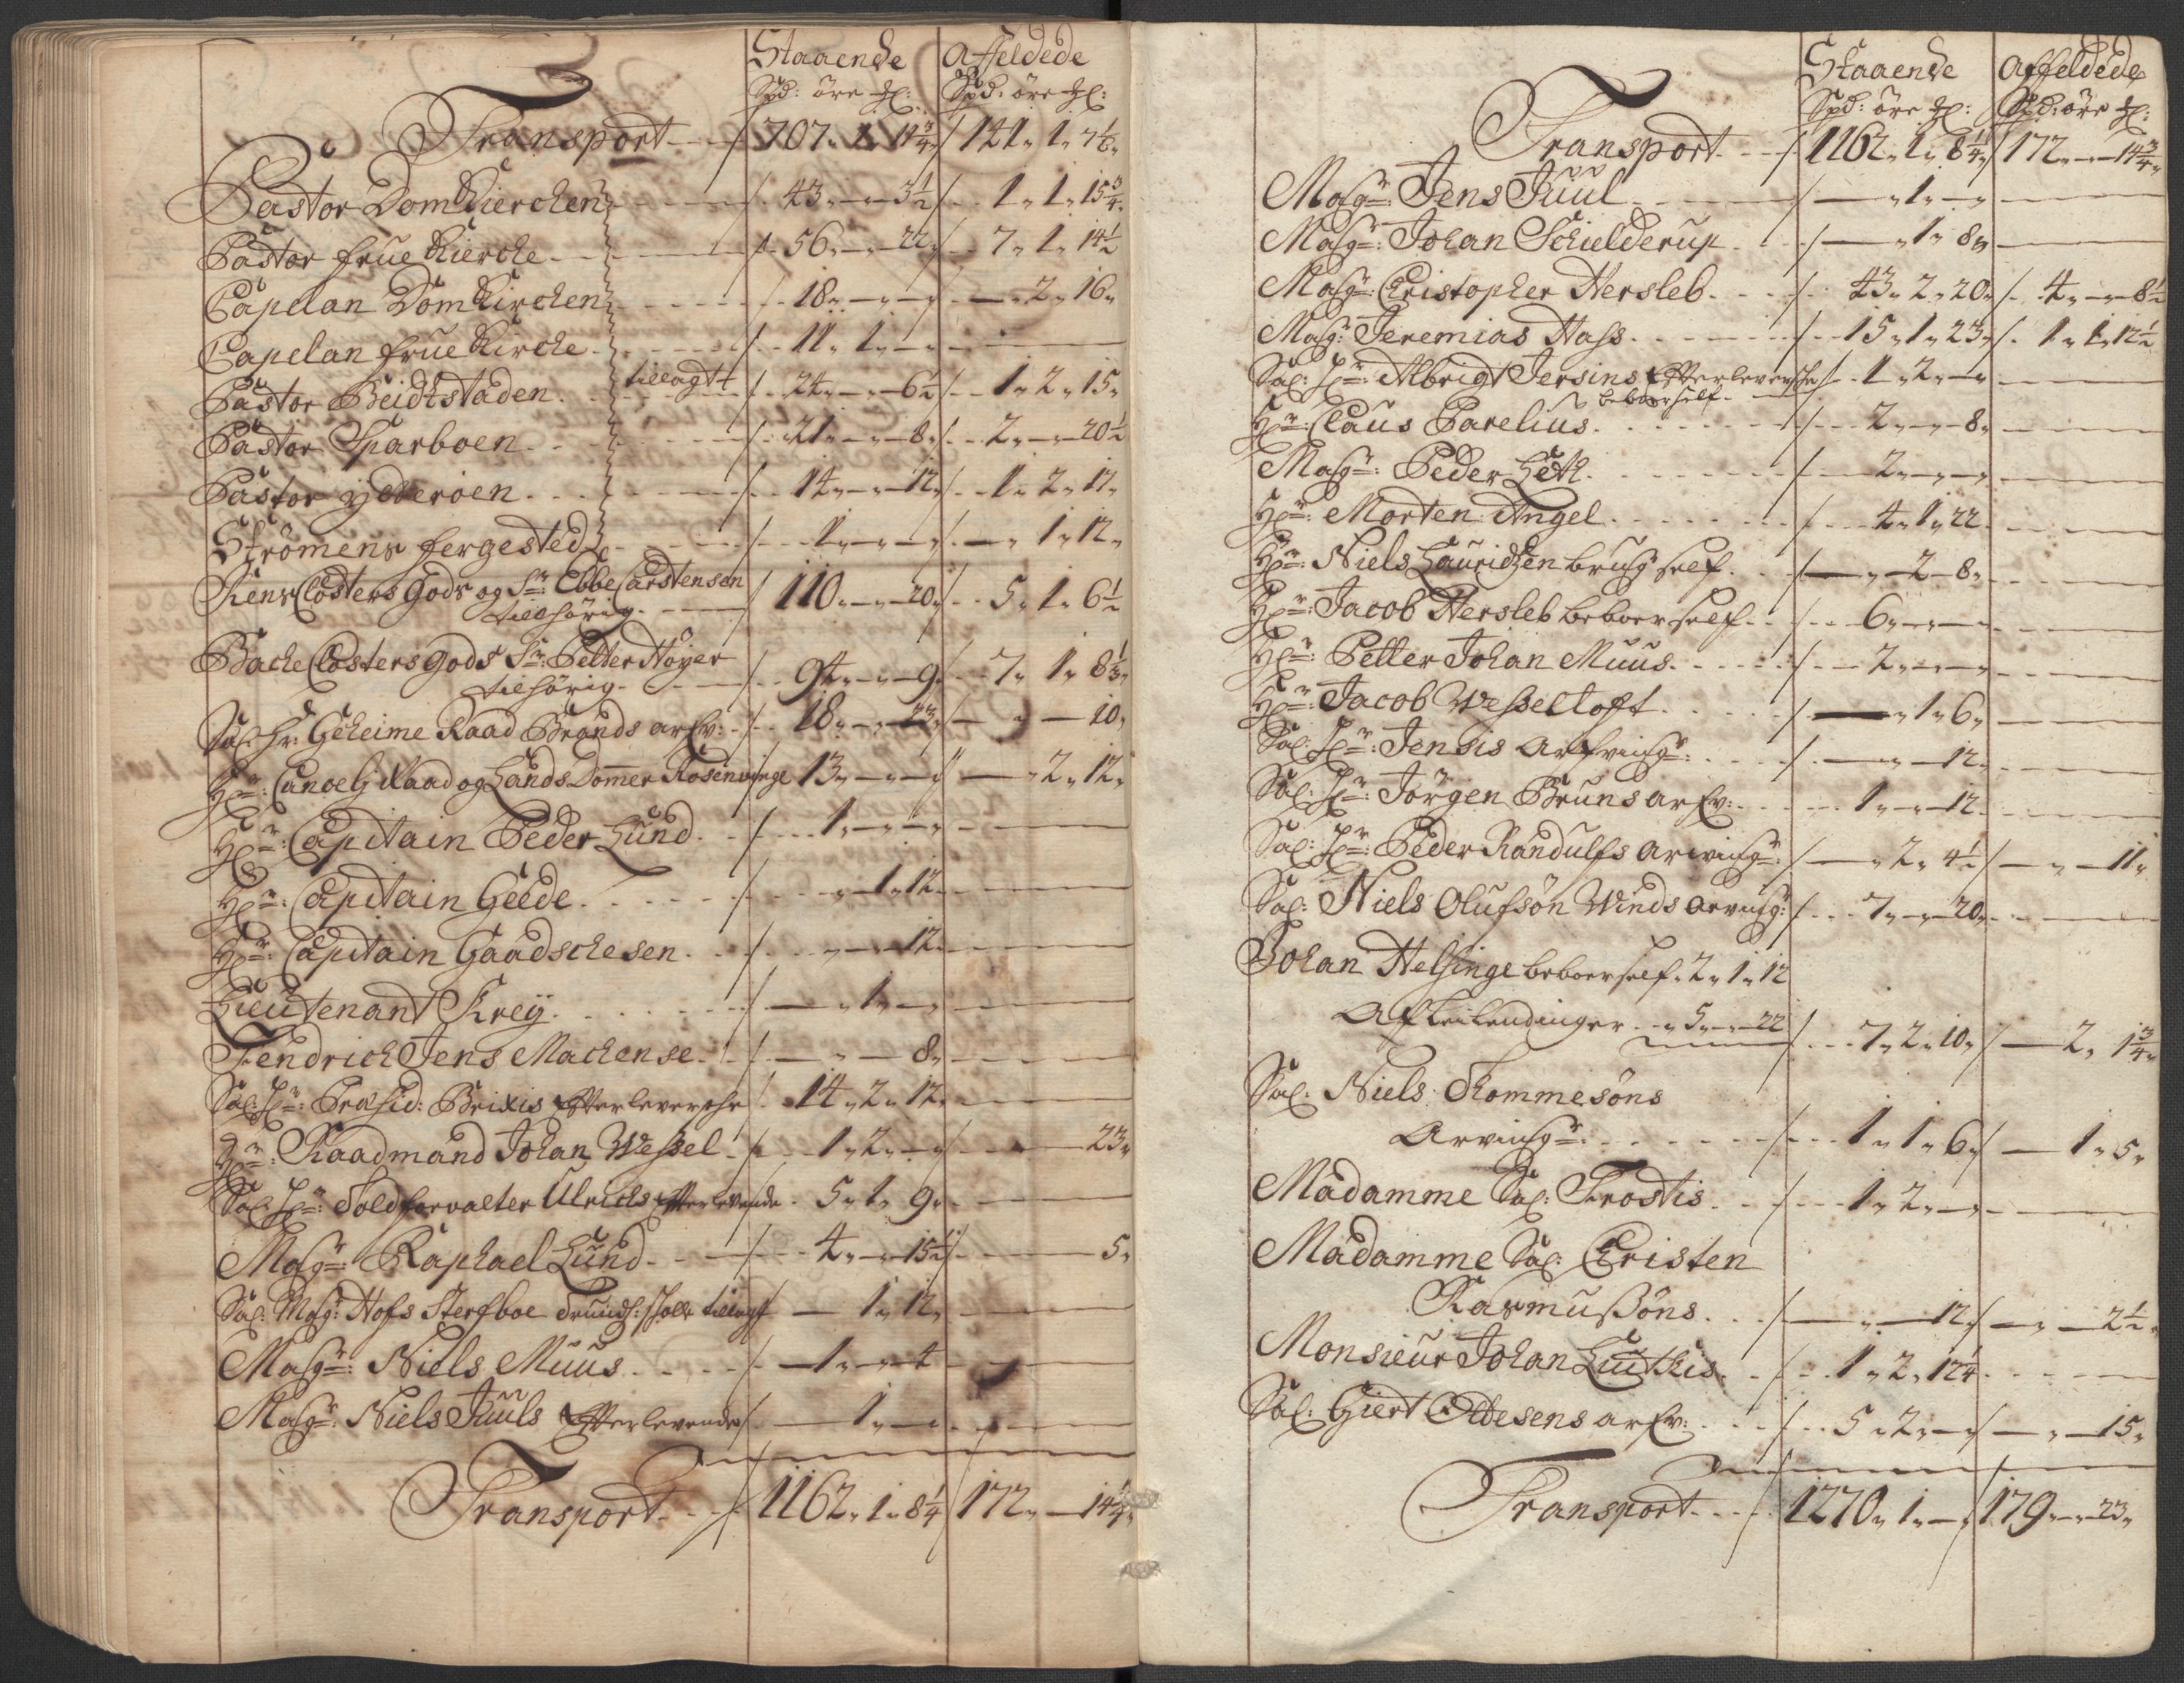 Staaende Affeldede
Spd: öre Ml: Spd: öre Ml:
Transport 707 " 1 " 14 3/4 " 141 " 1 " 7 1/2 "
Pastor Dom Kierchen 43 " — " 3 1/2 1 " 1 " 15 3/4 "
Pastor frue Kierche 56 " — " 22 " 7 " 1 " 14 1/2
Capelan Dom Kirchen 18 " — " — " — " 2 " 16 "
Capelan frue Kirche 11 " 1 " — " —
Pastor Beidtstaden tillagt 24 " — " 6 1/2 1 " 2 " 15 "
Pastor Sparboen 21 " — " 8 " 2 " — " 20 1/2
Pastor Yderöen 14 " — " 12 " 1 " 2 " 17 "
Strömens fergested 1 " — " — " — " 1 " 12 "
Rens Closters Gods og Sr: Ebbe Carstensen
tillhörig 110 " — " 20 " 5 " 1 " 6 1/2
Bache Closters Gods Sr: Petter Höyer
tilhörig 94 " — " 9 " 7 " 1 " 8 1/3 "
Sal: Hr: Geheime Raad Brands arfv: 18 " — " 23 " — " — 10 "
Hr: Cancelj Raad og Lands Dommer Rosenvinge 13 " — " — " — " 2 " 12 "
Hr: Capitain Peder Lund 1 " — " — " —
Hr: Capitain Geede " 1 " 12 " —
Hr: Capitain Gaadschesen " — " 12 " —
Lieutenant Kreÿ — " 1 " — " —
Fendrich Jens Machense — " — 8 " —
Sal: Hr: Præsid: Brixis Efterleversche 14 " 2 " 12 " —
Hr: Raadmand Johan Wessel 1 " 2 " — " — 23 "
Sal: Hr: Toldforvalter Ulrichs Efterlevende 5 " 1 " 9 " —
Magr: Raphael Lund 4 " — " 15 1/2 — 5 "
Sal: Magr: Hofs Sterfboe Trundh: Schole tillagt — 1 " 12 " —
Magr: Niels Muus — 1 " — " 4 —
Magr: Niels Juuls Efterlevendes — 1 " — " —
Transport 1162 " 1 " 8 1/4 172 " — 14 3/4 "
Staaende Affeldede
Spd: öre Ml: Spd: öre Ml:
Transport 1162 " 1 " 8 1/4 " 172 " — 14 3/4 "
Magr: Jens Juul — " 1 " — " —
Magr: Johan Schielderup — " 1 " 8 " —
Magr: Christopher Hersleb 43 " 2 " 20 " 4 " — " 8 1/2
Magr: Jeremias Hass 15 " 1 " 23 " 1 " 1 " 12 1/2
Sal: Hr: Albrigt Jersins Efterleversche 1 " 2 " — " —
beboer self
Hr: Claus Parelius 2 " — " 8 " —
Magr: Peder Leth 2 " — " — " —
Hr: Morten Angel 4 " 1 " 22 —
Hr: Niels Lauridzen brug self — " 2 — 8 " —
Hr: Jacob Hersleb beboer self 6 " — " — —
Hr: Petter Johan Muus 2 " — " — " —
Hr: Jacob Wesseltoft — " 1 " 6 " —
Sal: Hr: Jensis Arfvingr: — " — 12 " —
Sal: Hr: Jörgen Bruns arfv: 1 " — " 12 —
Sal: Hr: Peder Randulfs Arvingr: — " 2 " 4 1/2 — " — 11 "
Sal: Niels Olufsön Winds Arvingr: 7 " — " 20 " —
Johan Helsinge beboer self 2 " 1 " 12
Af Leilendinger " 5 " — " 22 7 " 2 " 10 " — 2 " 1 3/4 "
Sal: Niels Thommesöns
Arvingr: 1 " 1 " 6 " — 1 " 5 "
Madamme Sal: Frostis 1 " 2 " — " —
Madamme Sal: Christen
Rasmussöns — " — 12 " — " — 2 1/2 "
Monsieur Johan Luthkis 1 " 2 " 12 1/4 —
Sal: Giert Ottesens arfv: 5 " 2 " — " — " — 15 "
Transport 1270 " 1 " — " 179 " — " 23 "